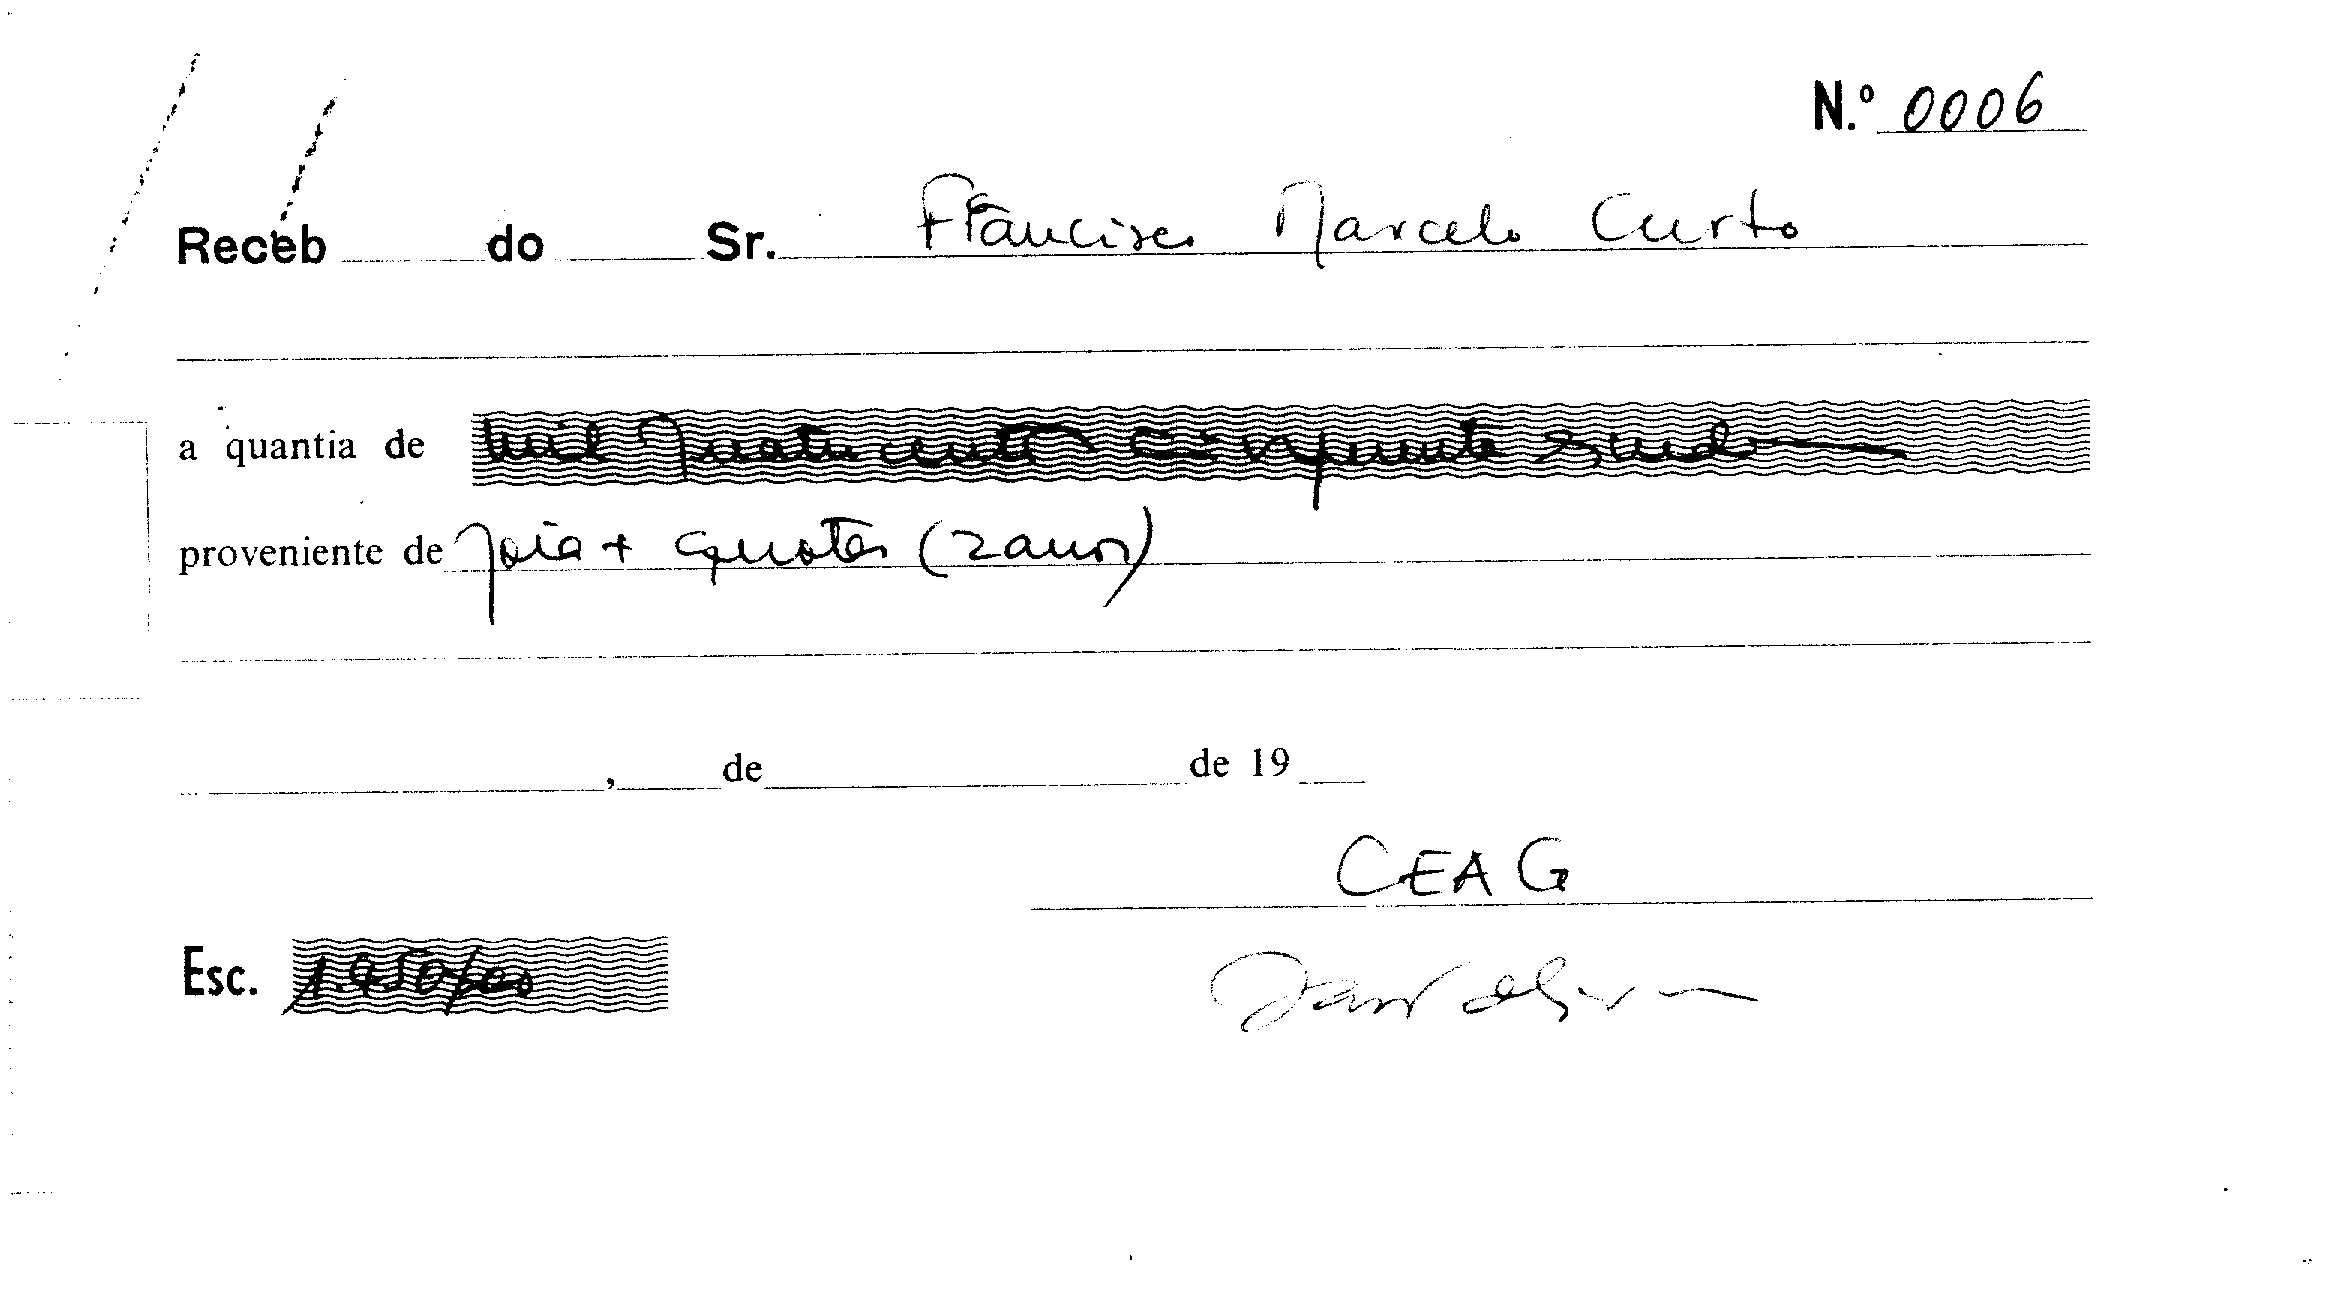 N.º 0006
Receb do Sr. Francisco Marcelo Curto
a quantia de mil quatrocentos cinquenta escudos
proveniente de joia + quotas (2 anos)
, de de 19
CEAG
Esc. 1.450/00